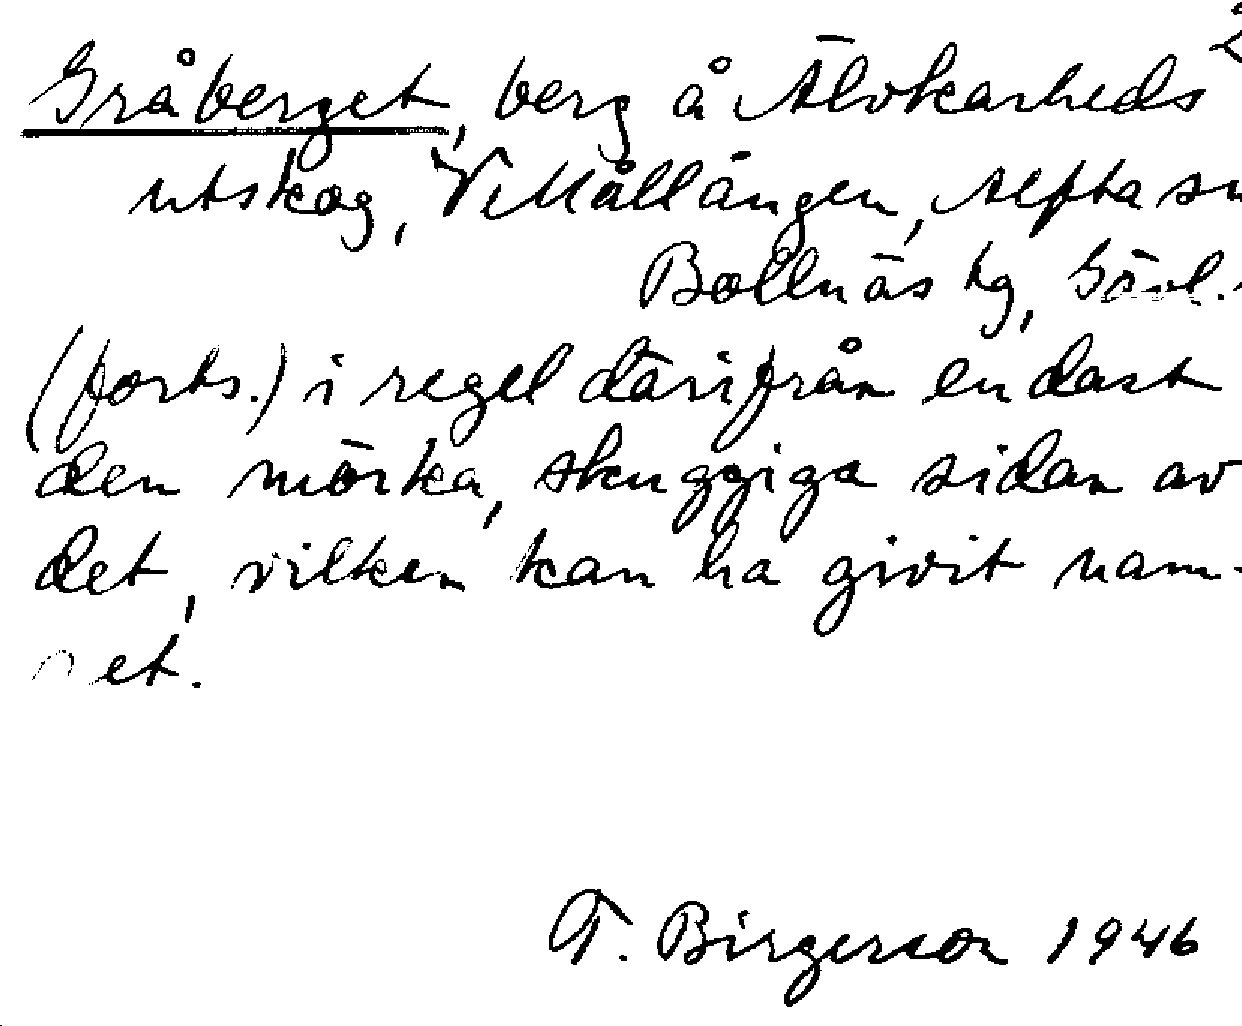 Gråberget, berg å Älvkarheds
utskog, V. Mållången, Alfta sn
Bollnäs tg, Gävl.
(forts.) i regel därifrån endast
den mörka, skuggiga sidan av
det, vilken kan ha givit nam-
net.
T. Birgerson 1946